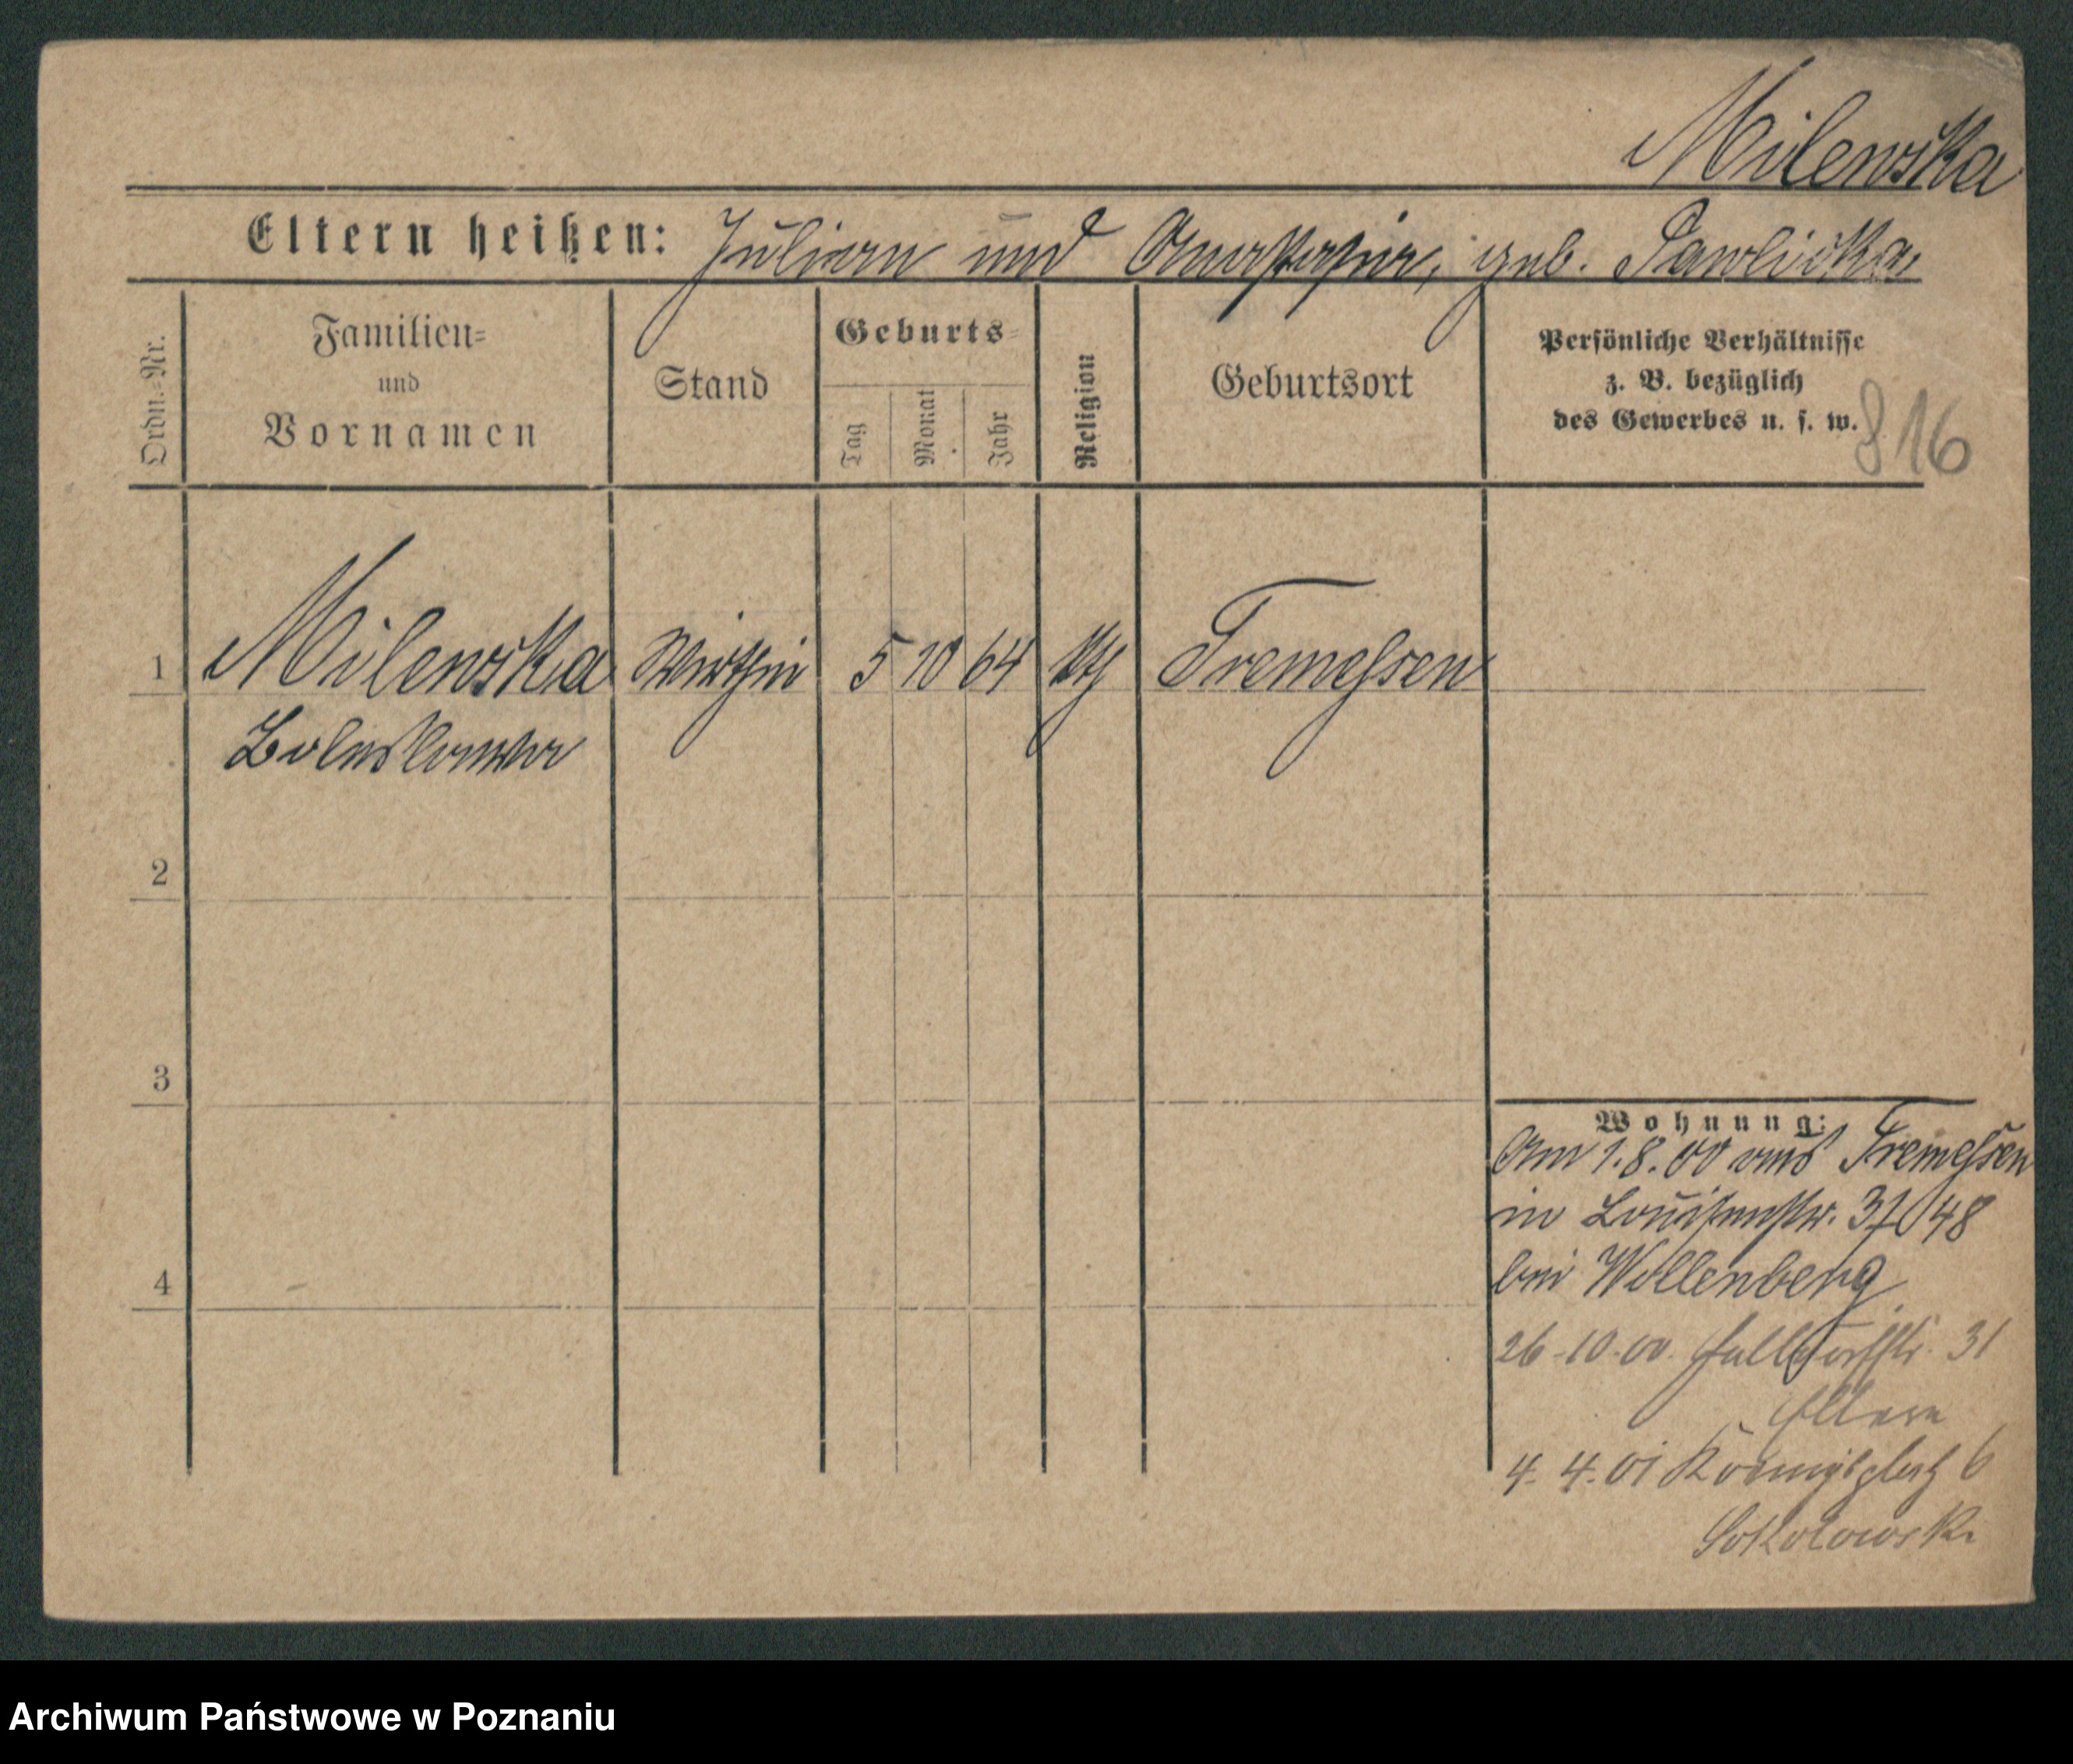 Milewska
Eltern heißen: Julian und Anastasia, geb. Pawlicka.
Ordn.=Nr.
Familien=
und
Vornamen
Stand
Geburts=
Tag
Monat
Jahr
Religion
Geburtsort
Persönliche Verhältnisse
z. B. bezüglich
des Gewerbes u. s. w.
816
1 Milewska Wirthin 5 10 64 kth Tremessen
Boleslawa
2
3
4
Wohnung:
Am 1.8.00 aus Tremessen
in Louisenstr. 3
bei Wollenberg
26-10-00. 31
Eltern
4. 4. 01 Königsplatz 6
Sokolowski
Archiwum Państwowe w Poznaniu